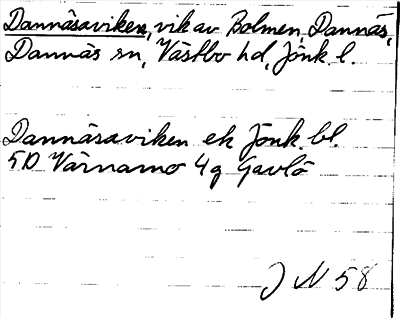 Dannäsaviken, vik av Bolmen, Dannäs,
Dannäs sn, Västbo hd, Jönk. l.
Dannäsaviken ek Jönk. bl.
5D Värnamo 4g Gavlö
J N 58